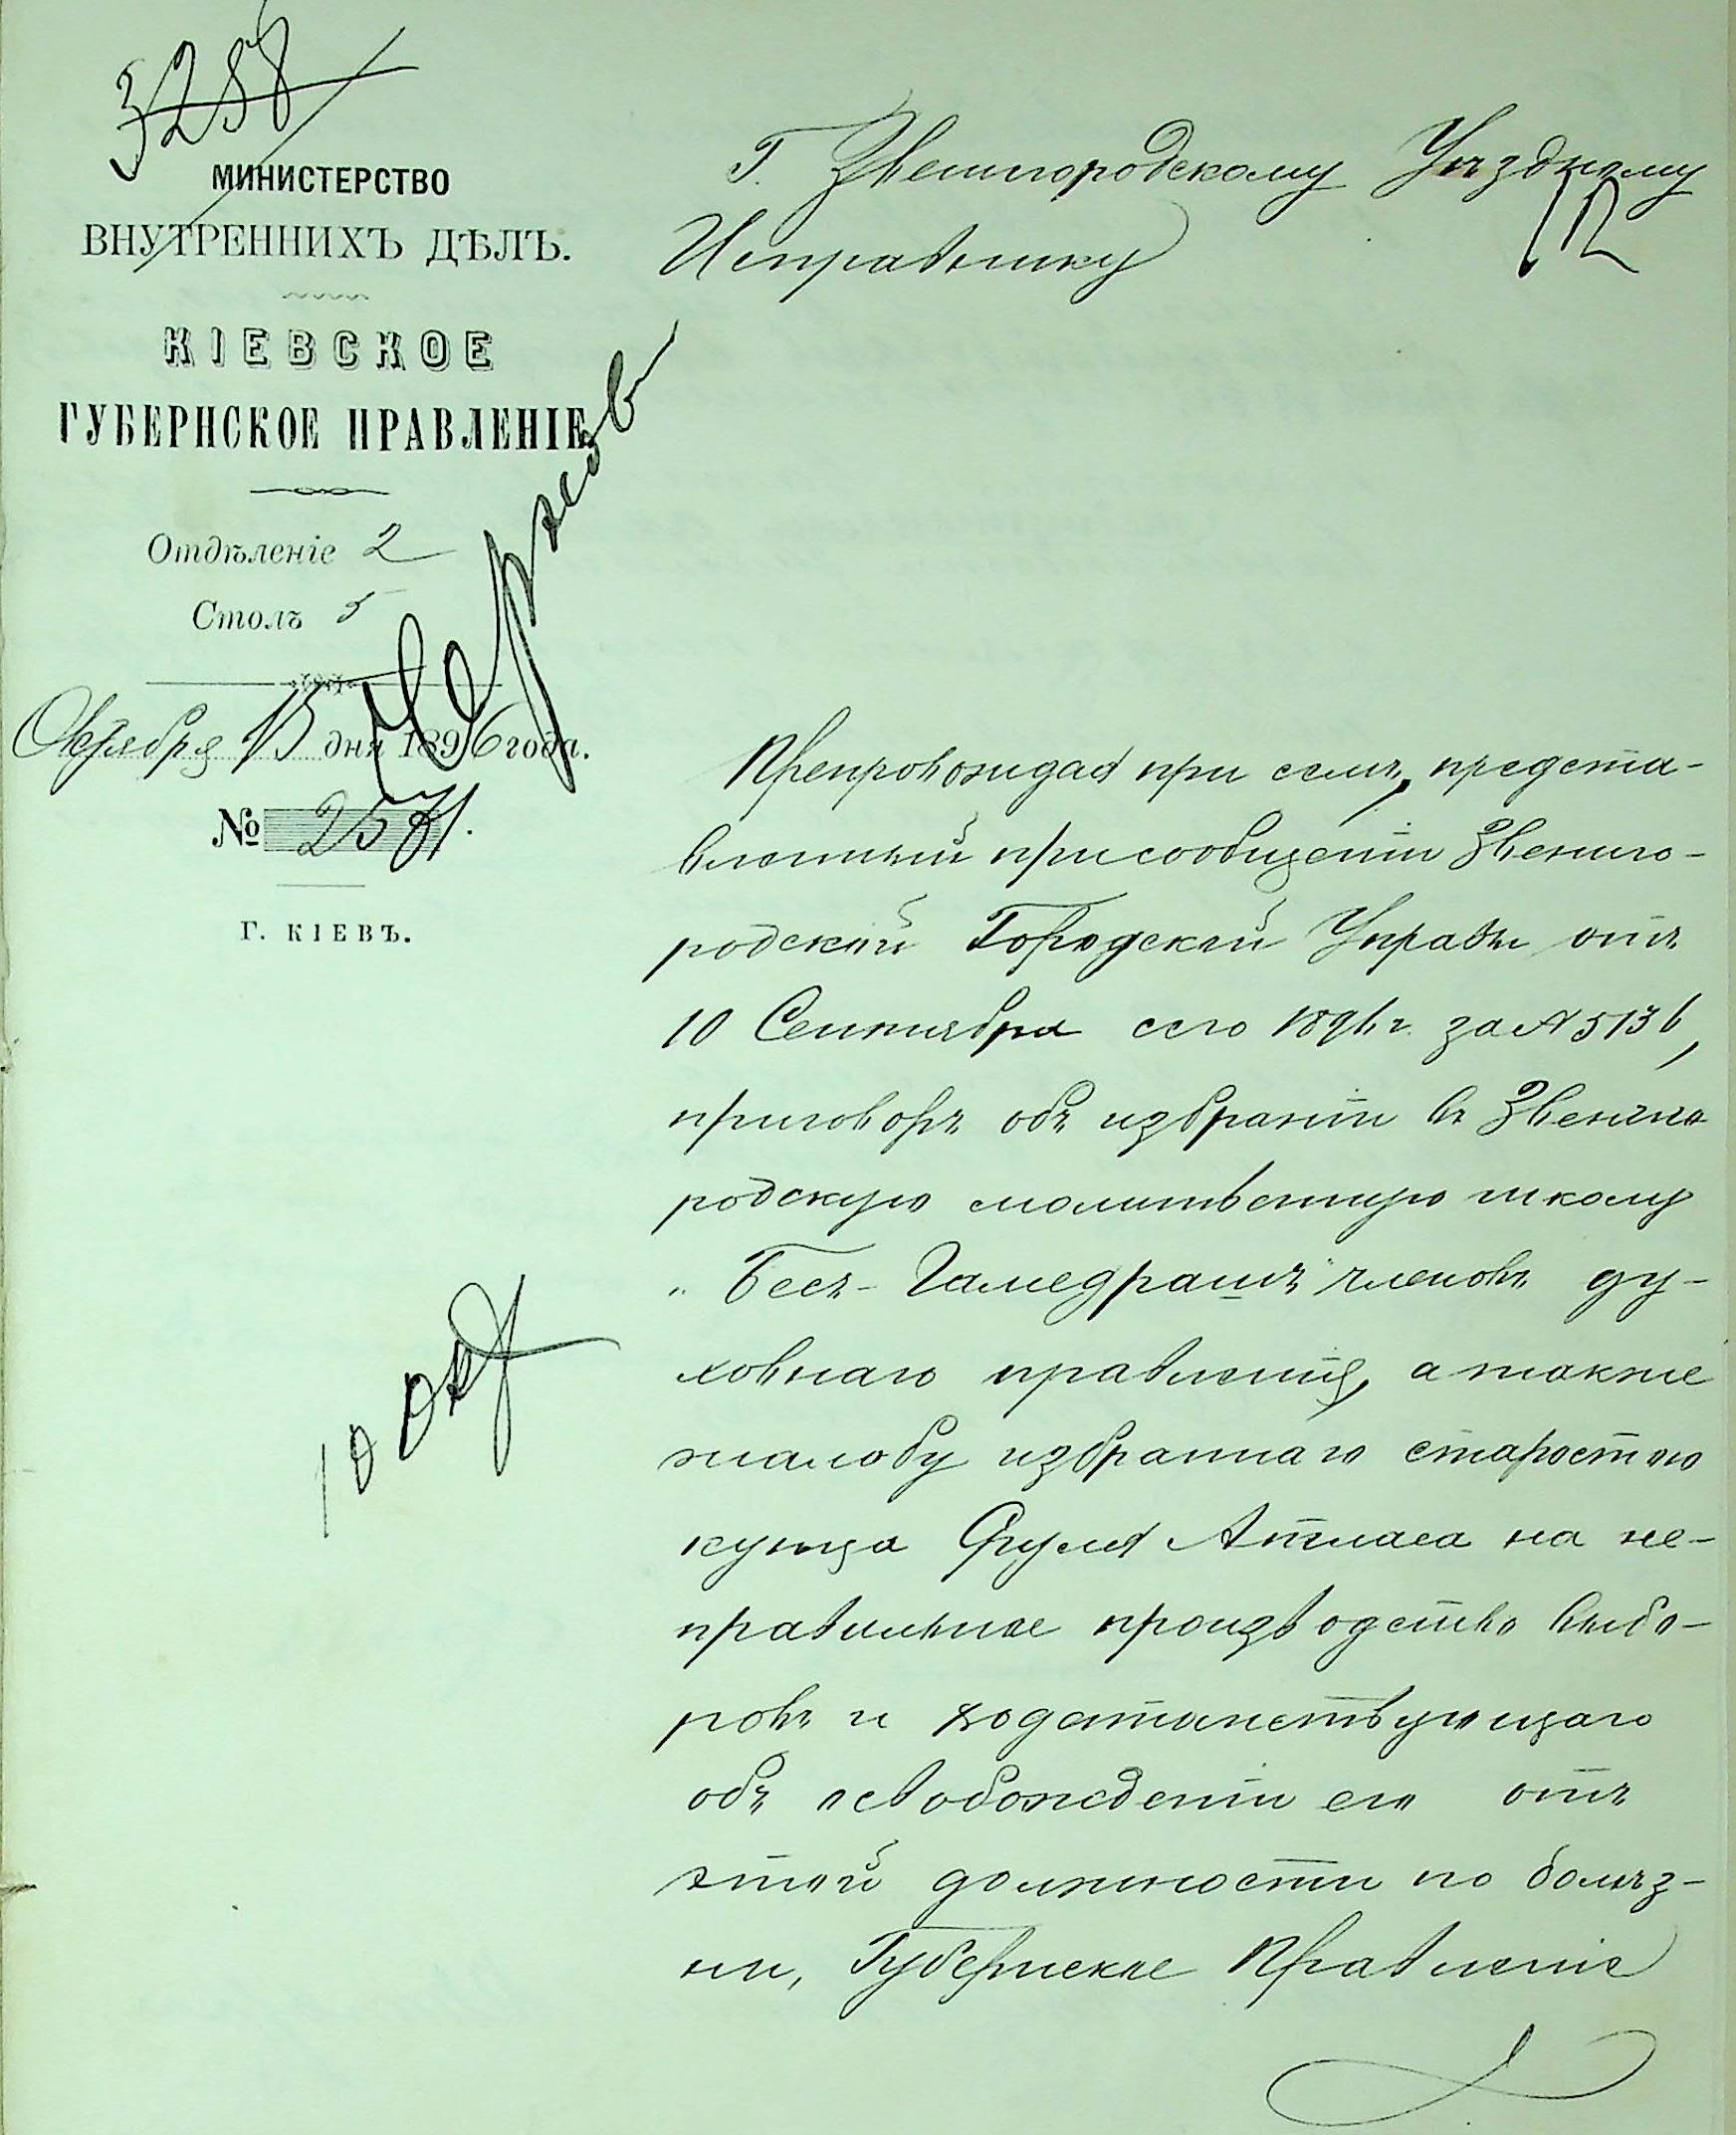 3258
МИНИСТЕРСТВО
ВНУТРЕННИХЪ ДѢЛЪ.
КІЕВСКОЕ
ГУБЕРНСКОЕ ПРАВЛЕНІЕ
Отдѣленіе 2
Столъ 5
Октября 15 дня 1896 года.
№ 2581.
Г. КІЕВЪ.
10 Окт
Г. Звенигородскому Уѣздному
Исправнику
Препровождая при семъ, предста-
вленный при сообщеніи Звениго-
родской Городской Управы отъ
10 Сентября сего 1896 г. за № 5136,
приговоръ объ избраніи въ Звениго
родскую молитвенную школу
„Бесъ-Гамедрашъ" членовъ ду-
ховнаго правленія, а также
жалобу избраннаго старостою
купца Фуля Атласа на не-
правильное производство выбо-
ровъ и ходатайствующаго
объ освобожденіи его отъ
этой должности по болѣз-
ни, Губернское Правленіе